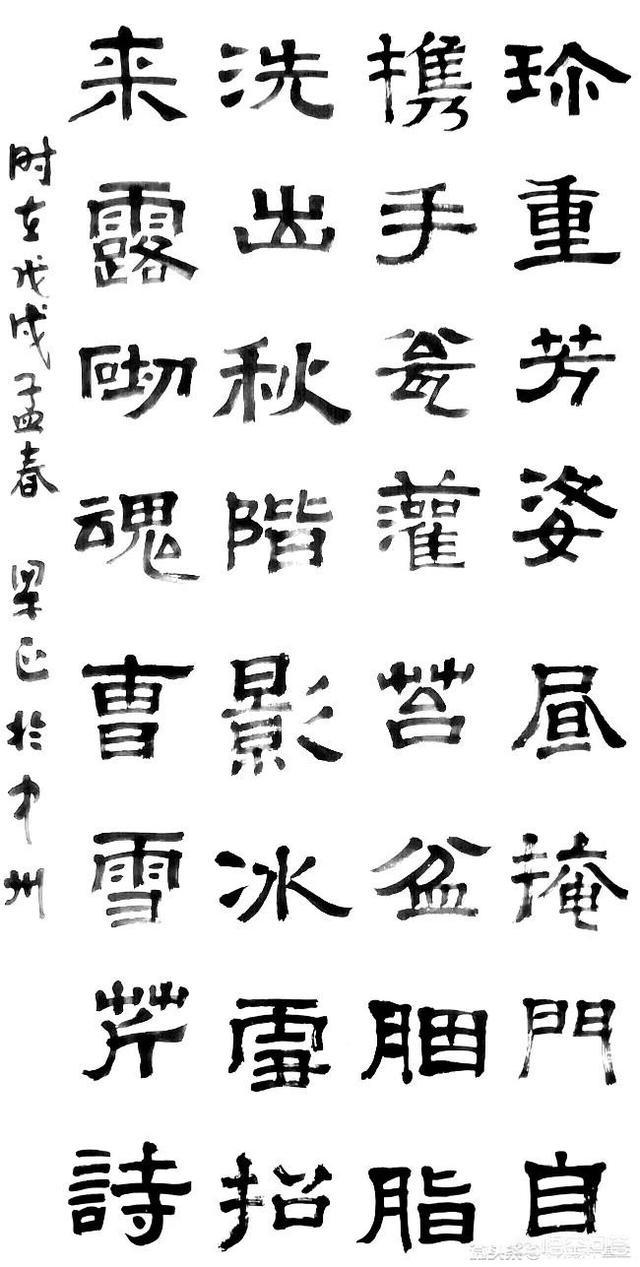 珎重芳姿昼掩門自
携手瓮灌苔盆胭脂
洗出秋階影冰雪招
来露砌魂曹雪芹詩
时在戊戌孟春 梁正於中州